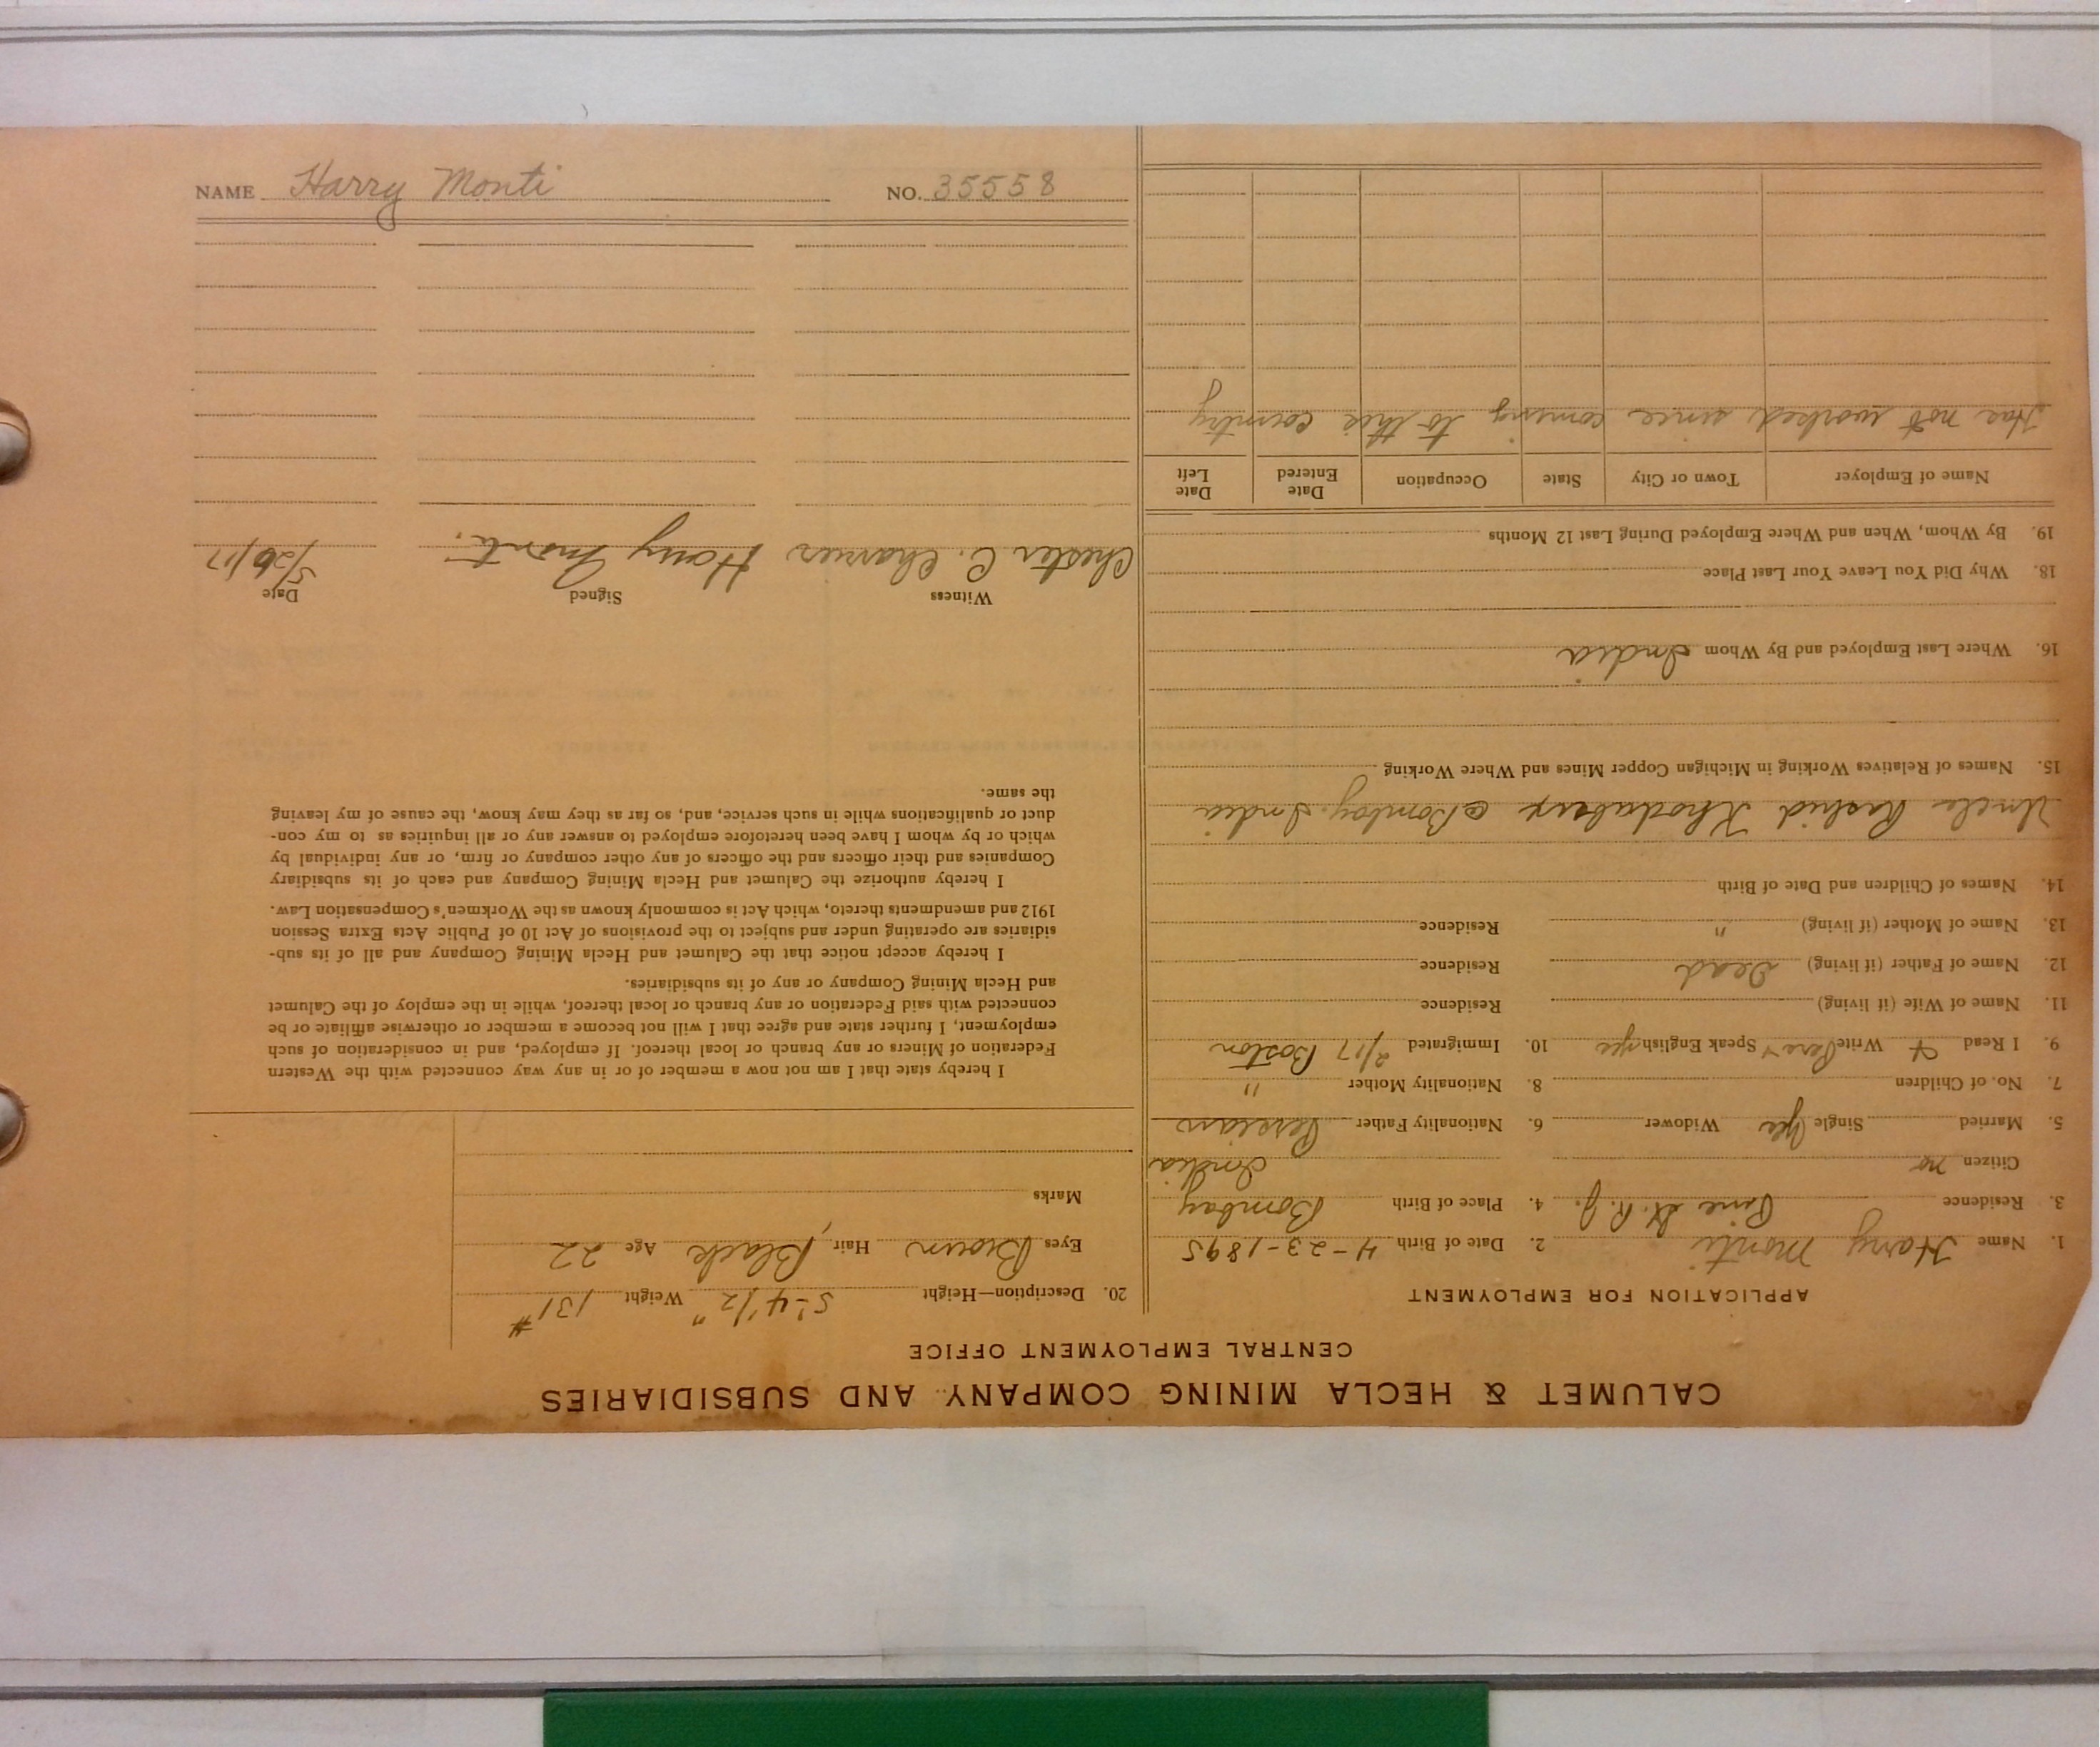 NAME Harry Monti NO. 35558
CALUMET & HECLA MINING COMPANY AND SUBSIDIARIES
CENTRAL EMPLOYMENT OFFICE
APPLICATION FOR EMPLOYMENT
1. Name Harry Monti 2. Date of Birth 4-23-1895
3. Residence Pine St. R. J. 4. Place of Birth Bombay
Citizen no India
5. Married Single Yes Widower 6. Nationality Father Persian
7. No. of Children 8. Nationality Mother "
9. I Read & Write Pers Speak English yes 10. Immigrated 2/17 Boston
11. Name of Wife (if living) Residence
12. Name of Father (if living) Dead Residence
13. Name of Mother (if living) " Residence
14. Names of Children and Date of Birth
Uncle Rashid Khodabux Bombay, India
15. Names of Relatives Working in Michigan Copper Mines and Where Working
16. Where Last Employed and By Whom India
18. Why Did You Leave Your Last Place
19. By Whom, When and Where Employed During Last 12 Months
Name of Employer Town or City State Occupation Date Entered Date Left
Has not worked since coming to this country
20. Description—Height 5'-4 1/2" Weight 131#
Eyes Brown Hair Black Age 22
Marks
I hereby state that I am not now a member of or in any way connected with the Western
Federation of Miners or any branch or local thereof. If employed, and in consideration of such
employment, I further state and agree that I will not become a member or otherwise affiliate or be
connected with said Federation or any branch or local thereof, while in the employ of the Calumet
and Hecla Mining Company or any of its subsidiaries.
I hereby accept notice that the Calumet and Hecla Mining Company and all of its sub-
sidiaries are operating under and subject to the provisions of Act 10 of Public Acts Extra Session
1912 and amendments thereto, which Act is commonly known as the Workmen's Compensation Law.
I hereby authorize the Calumet and Hecla Mining Company and each of its subsidiary
Companies and their officers and the officers of any other company or firm, or any individual by
which or by whom I have been heretofore employed to answer any or all inquiries as to my con-
duct or qualifications while in such service, and, so far as they may know, the cause of my leaving
the same.
Witness Signed Date
Chester C. Harry Monti. 5/26/17